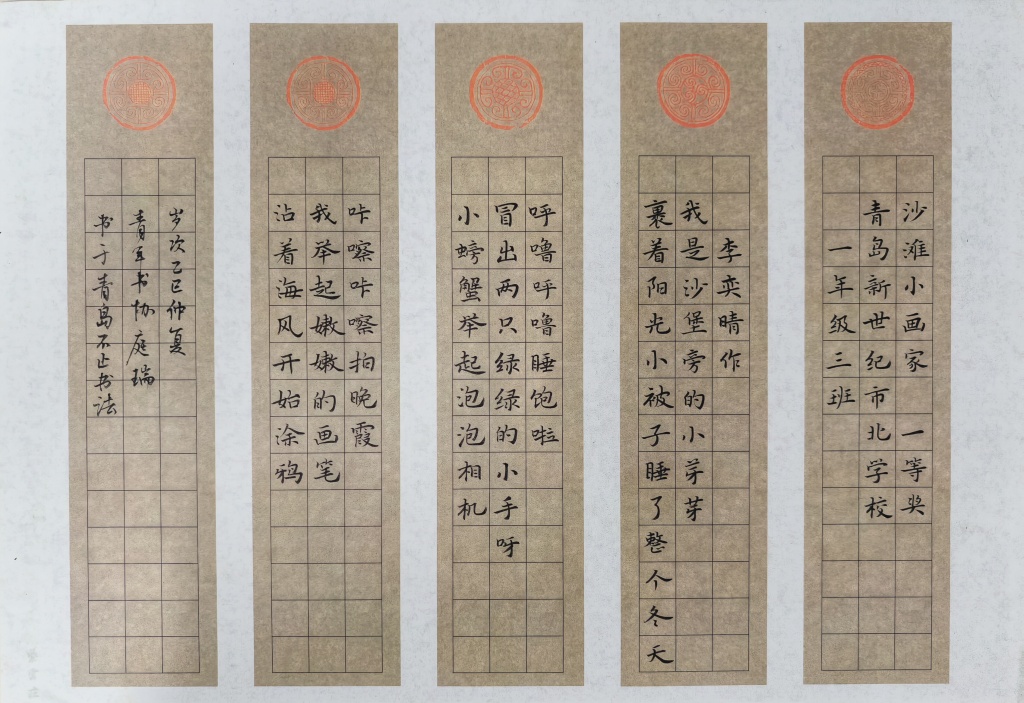 沙滩小画家 一等奖
青岛新世纪市北学校
一年级三班
李奕晴作
我是沙堡旁的小芽芽
裹着阳光小被子睡了整个冬天
呼噜呼噜睡饱啦
冒出两只绿绿的小手呀
小螃蟹举起泡泡相机
咔嚓咔嚓拍晚霞
我举起嫩嫩的画笔
沾着海风开始涂鸦
岁次乙巳仲夏
青军书协庭瑞
书于青岛不止书法